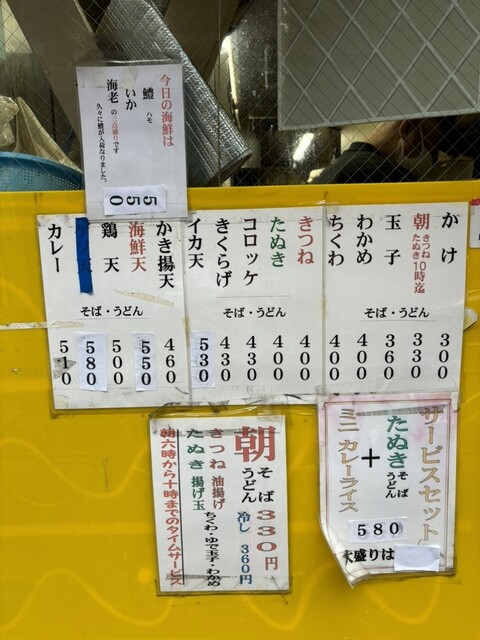 今日の海鮮は
鱧 ハモ
いか
海老 の三点盛りです
久々に鱧が入荷なりました。
550
かけ
朝 きつね たぬき 10時迄
玉子
わかめ
ちくわ
そば・うどん
300
330
360
400
400
きつね
たぬき
コロッケ
きくらげ
イカ天
そば・うどん
400
400
430
430
530
かき揚天
海鮮天
鶏天
天
カレー
そば・うどん
460
550
500
580
510
サービスセット
たぬき そば うどん
+
ミニカレーライス
580
大盛りは
朝 そば うどん 330円
冷し 360円
きつね 油揚げ
たぬき 揚げ玉
ちくわ・ゆで玉子・わかめ
朝六時から十時までのタイムサービス